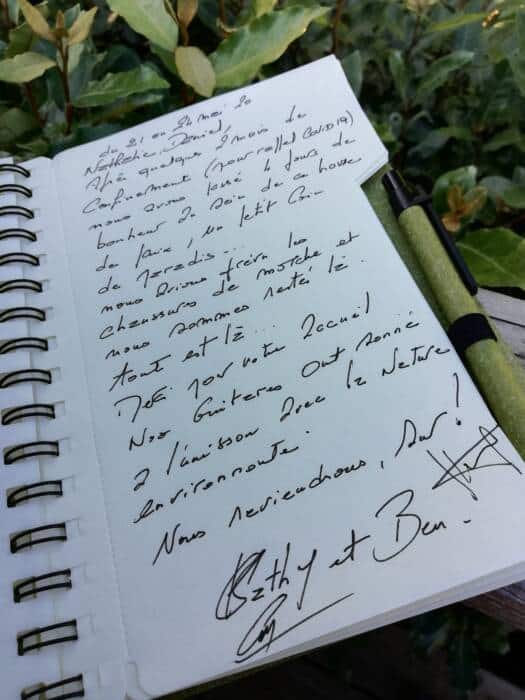 du 21 au 24 mai 20
Nathalie, Daniel,
Après quelques 2 mois de
Confinement (pour rappel CoVID19)
nous avons passé 4 jours de
bonheur au sein de ce havre
de paix, un petit Coin
de paradis...
nous avions prévu les
chaussures de marche et
nous sommes restés là.
tout est là...
Merci pour votre accueil
Nos Guitares ont sonné
à l'unisson avec la Nature
environnante.
Nous reviendrons, sur!
Kathy et Ben.